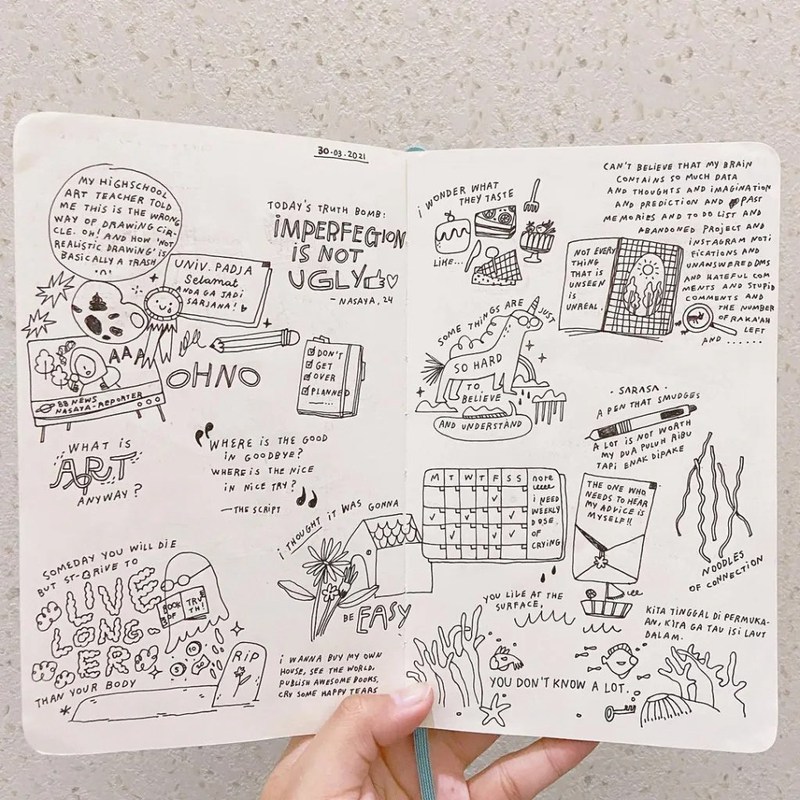 30.03.2021
MY HIGHSCHOOL
ART TEACHER TOLD
ME THIS IS THE WRONG
WAY OF DRAWING CIR-
CLE. OH! AND HOW 'NOT
REALISTIC DRAWING' IS
BASICALLY A TRASH.
UNIV. PADJA
Selamat
ANDA GA JADI
SARJANA!
AAA
OHNO
BB NEWS
NASAYA-REPORTER
TODAY'S TRUTH BOMB:
IMPERFECTION
IS NOT
UGLY
- NASAYA, 24
DON'T
GET
OVER
PLANNED
WHAT IS
ART
ANYWAY?
"WHERE IS THE GOOD
IN GOODBYE?
WHERE IS THE NICE
IN NICE TRY?"
- THE SCRIPT
SOMEDAY YOU WILL DIE
BUT ST-RIVE TO
LIVE
LONG-
ER
THAN YOUR BODY
*
BOOK OF TRUTH!
RIP
I THOUGHT IT WAS GONNA
BE EASY
I WANNA BUY MY OWN
HOUSE, SEE THE WORLD,
PUBLISH AWESOME BOOKS,
CRY SOME HAPPY TEARS
I WONDER WHAT
THEY TASTE
LIKE...
CAN'T BELIEVE THAT MY BRAIN
CONTAINS SO MUCH DATA
AND THOUGHTS AND IMAGINATION
AND PREDICTION AND PAST
MEMORIES AND TO DO LIST AND
ABANDONED PROJECT AND
INSTAGRAM NOTI
FICATIONS AND
UNANSWERED DMS
AND HATEFUL COM
MENTS AND STUPID
COMMENTS AND
THE NUMBER
OF RAKA'AH
LEFT
AND .......
NOT EVERY
THING
THAT IS
UNSEEN
IS
UNREAL.
SOME THINGS ARE JUST
SO HARD
TO
BELIEVE
AND UNDERSTAND
- SARASA -
A PEN THAT SMUDGES
A LOT IS NOT WORTH
MY DUA PULUH RIBU
TAPI ENAK DIPAKE
M T W T F S S
NOTE
I NEED
WEEKLY
DOSE
OF
CRYING
THE ONE WHO
NEEDS TO HEAR
MY ADVICE IS
MYSELF!!
NOODLES
OF CONNECTION
YOU LIVE AT THE
SURFACE,
YOU DON'T KNOW A LOT.
KITA TINGGAL DI PERMUKA-
AN, KITA GA TAU ISI LAUT
DALAM.